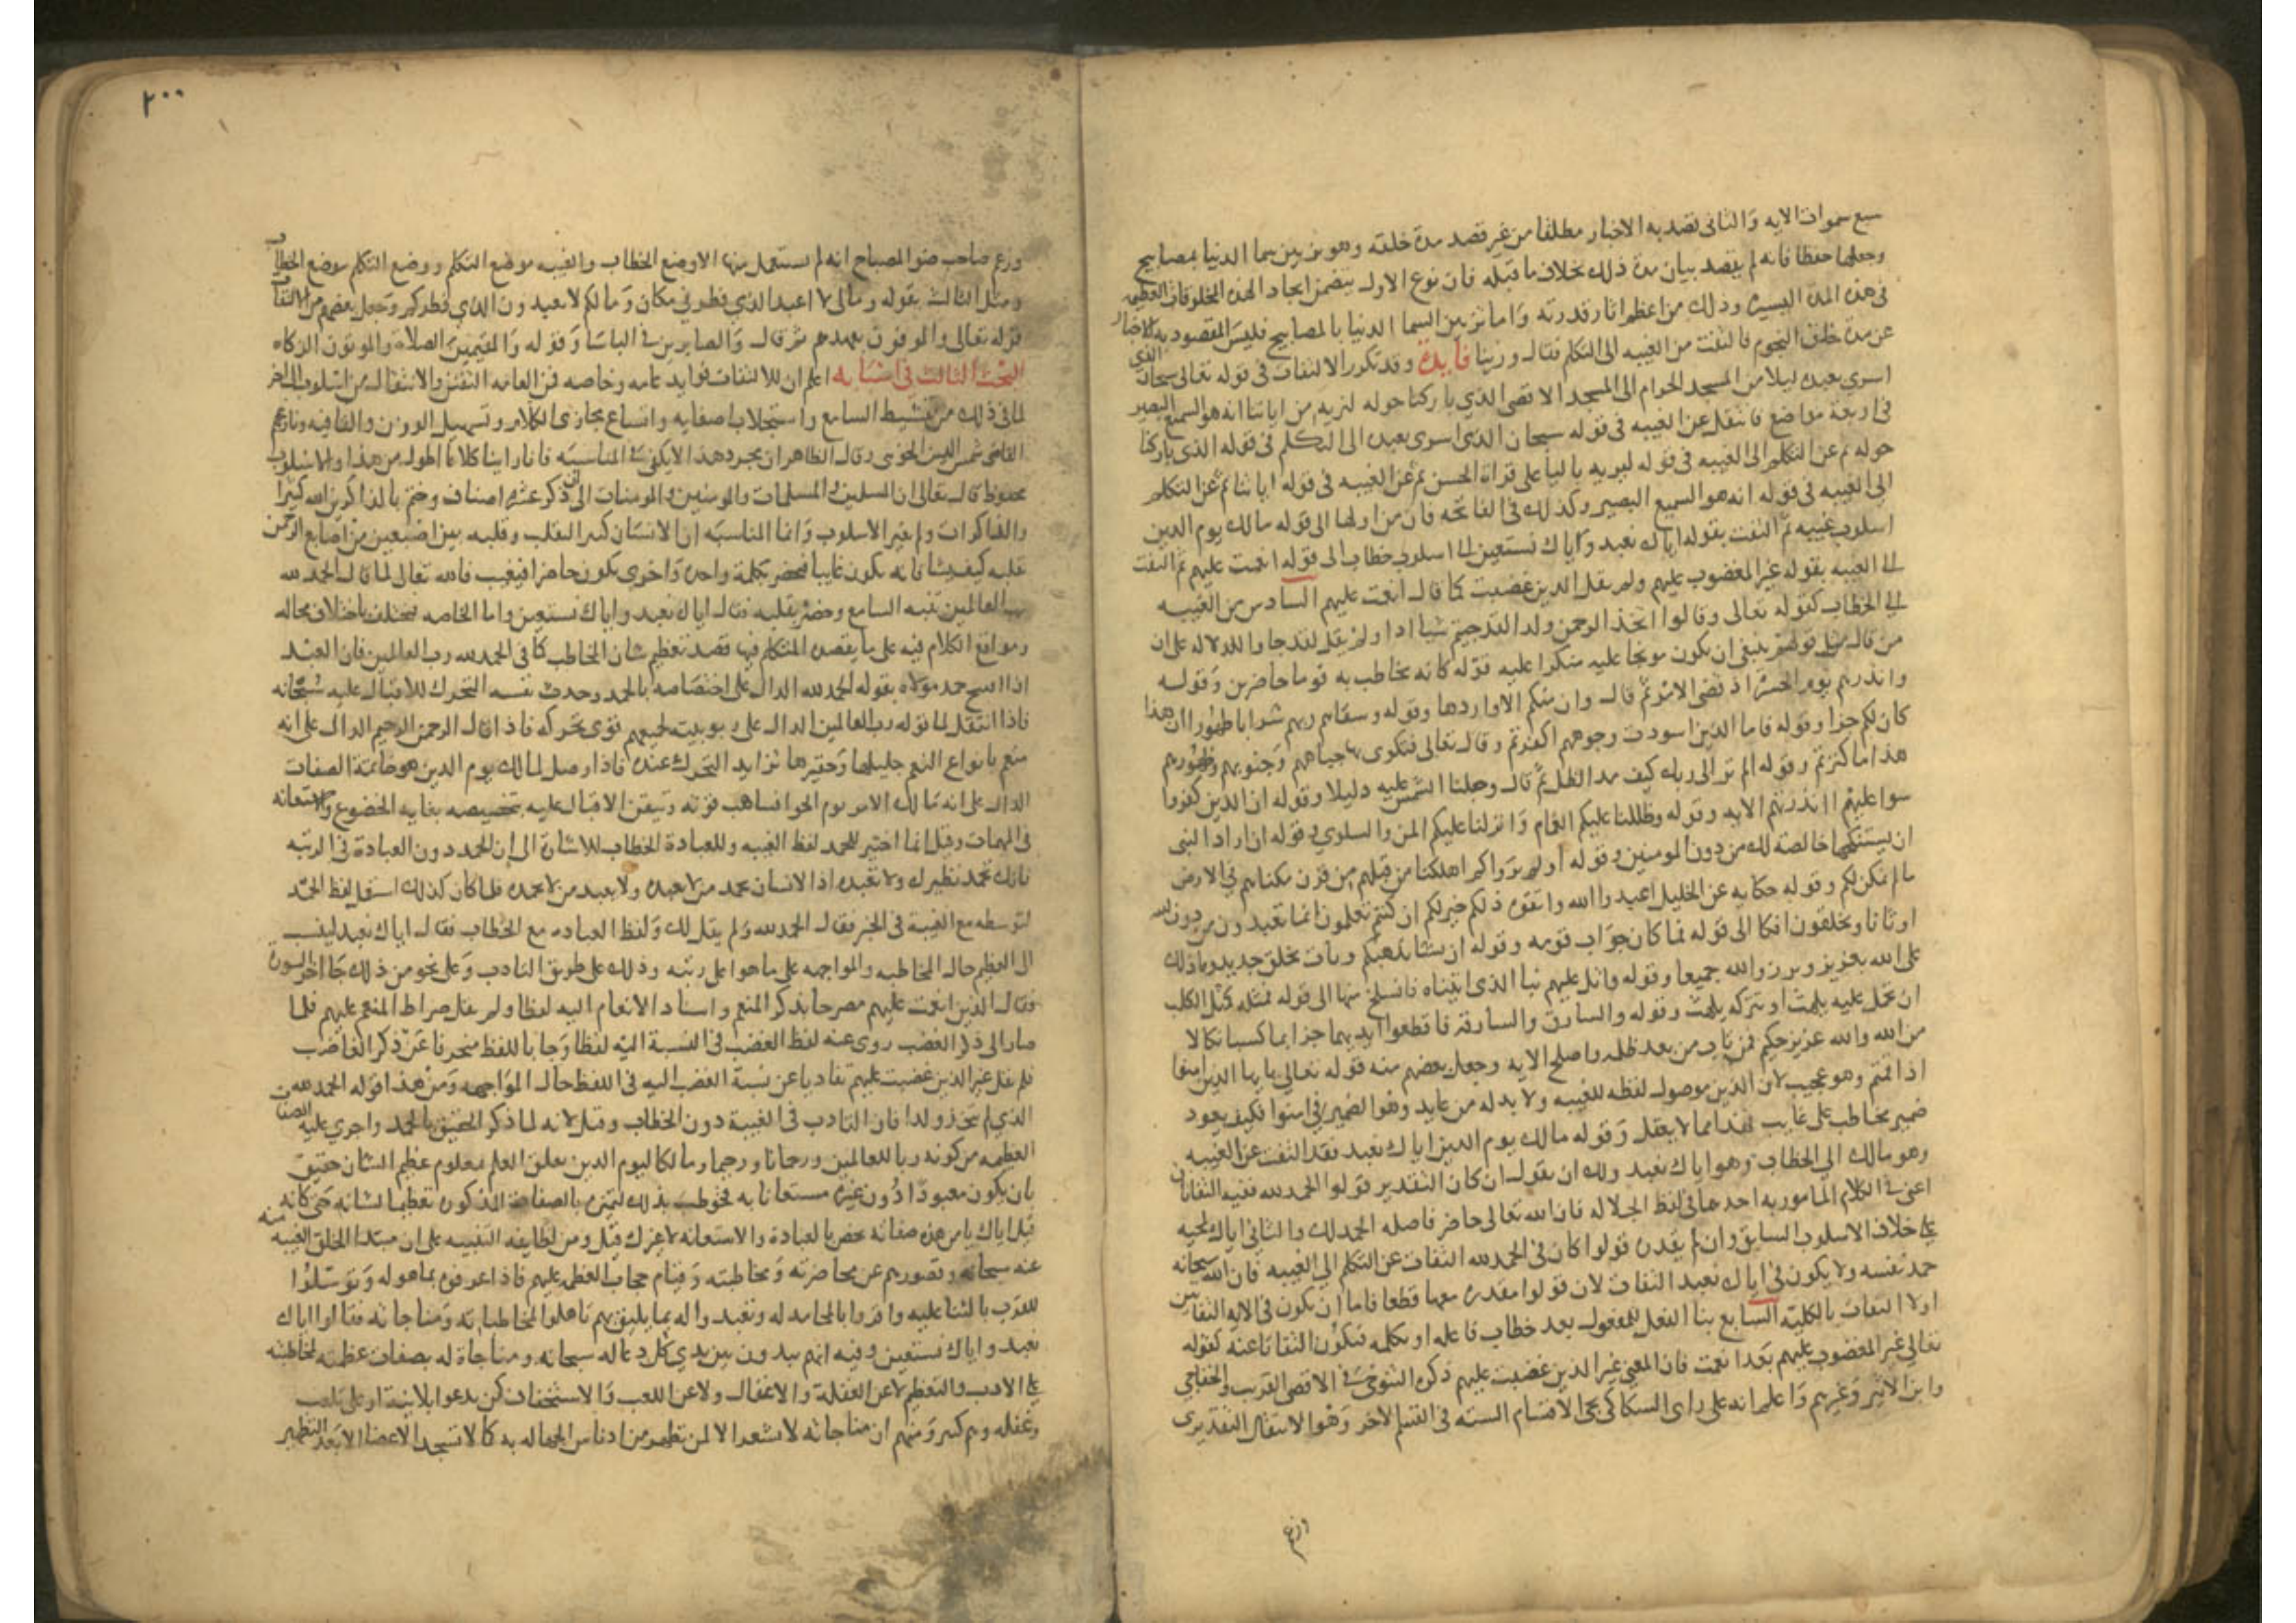 سبع سموات الايه والثانى قصد به الاخبار مطلقا من غير قصد مدة خلقه وهو تزيين سما الدنيا بمصابيح
وجعلها حفظا فانه لم يقصد بيان مدة ذلك بخلاف ما قبله فان نوع الاول يتضمن ايجاد لهذه المخلوقات العظيمه
فى هذه المدة اليسيره وذلك من اعظم اثار قدرته واما تزيين السما الدنيا بالمصابيح فليس المقصود به الاخبار
عن مدة خلق النجوم فالتفت من الغيبه الى التكلم فقال وزينا فايدة وقد تكرر الالتفات فى قوله تعالى سبحان الذى
اسرى بعبده ليلا من المسجد الحرام الى المسجد الاقصى الذى باركنا حوله لنريه من اياتنا انه هو السميع البصير
فى اربعة مواضع فانتقل عن الغيبه فى قوله سبحان الذى اسرى بعبده الى التكلم فى قوله الذى باركنا
حوله ثم عن التكلم الى الغيبه فى قوله ليريه باليا على قراة الحسن ثم عن الغيبه فى قوله اياتنا ثم عن التكلم
الى الغيبه فى قوله انه هو السميع البصير وكذلك فى الفاتحه فان من اولها الى قوله مالك يوم الدين
اسلوب غيبه ثم التفت بقوله اياك نعبد واياك نستعين الى اسلوب خطاب الى قوله انعمت عليهم ثم التفت
الى الغيبه بقوله غير المغضوب عليهم ولم يقل الذين غضبت كما قال انعمت عليهم السادس من الغيبه
الى الخطاب كقوله تعالى وقالوا اتخذ الرحمن ولدا لقد جيتم شيا ادا ولم يقل لقد جاوا للدلاله على ان
من قال مثل قولهم ينبغى ان يكون موبخا عليه منكرا عليه قوله كانه يخاطب به قوما حاضرين وقوله
وانذرهم يوم الحسرة اذ قضى الامر ثم قال وان منكم الا واردها وقوله وسقاهم ربهم شرابا طهورا ان هذا
كان لكم جزا وقوله فاما الذين اسودت وجوههم اكفرتم وقال تعالى فتكوى بها جباههم وجنوبهم وظهورهم
هذا ما كنزتم وقوله الم تر الى ربك كيف مد الظل ثم قال وجعلنا الشمس عليه دليلا وقوله ان الذين كفروا
سوا عليهم اانذرتهم الايه وقوله وظللنا عليكم الغمام وانزلنا عليكم المن والسلوى وقوله ان اراد النبى
ان يستنكحها خالصة لك من دون المومنين وقوله اولم يروا كم اهلكنا من قبلهم من قرن مكناهم فى الارض
ما لم نمكن لكم وقوله حكايه عن الخليل اعبدوا الله واتقوه ذلكم خير لكم ان كنتم تعلمون انما تعبدون من دون الله
اوثانا وتخلقون افكا الى قوله فما كان جواب قومه وقوله ان يشا يذهبكم ويات بخلق جديد وما ذلك
على الله بعزيز وبرزوا لله جميعا وقوله واتل عليهم نبا الذى اتيناه فانسلخ منها الى قوله فمثله كمثل الكلب
ان تحمل عليه يلهث او تتركه يلهث وقوله والسارق والسارقة فاقطعوا ايديهما جزا بما كسبا نكالا
من الله والله عزيز حكيم فمن تاب من بعد ظلمه واصلح الايه وجعل بعضهم منه قوله تعالى يا ايها الذين امنوا
اذا قمتم وهو عجيب لان الذين موصول لفظه للغيبه ولا بد له من عايد وهو الضمير فى امنوا فكيف يعود
ضمير مخاطب على غايب فهذا مما لا يعقل وقوله مالك يوم الدين اياك نعبد فقد التفت عن الغيبه
وهو مالك الى الخطاب وهو اياك نعبد ولك ان تقول ان كان التقدير قولوا الحمد لله ففيه التفاتان
اعنى فى الكلام المامور به احدهما فى لفظ الجلاله فان الله تعالى حاضر فاصله الحمد لك والثانى اياك لمجيه
على خلاف الاسلوب السابق وان لم يقدر قولوا كان فى الحمد لله التفات عن التكلم الى الغيبه فان الله سبحانه
حمد نفسه ولا يكون فى اياك نعبد التفات لان قولوا مقدرة معها قطعا فاما ان يكون فى الايه التفاتين
اولا التفات بالكليه السابع بنا الفعل للمفعول بعد خطاب فاعله او تكلمه فيكون التفاتا عنه كقوله
تعالى غير المغضوب عليهم بعد انعمت فان المعنى غير الذين غضبت عليهم ذكره التنوخى فى الاقصى القريب والخفاجى
وابن الاثير وغيرهم واعلم انه على راى السكاكى تجى الاقسام السته فى القسم الاخر وهو الانتقال التقديرى
وزعم
٢٠٠
وزعم صاحب ضو المصباح انه لم يستعمل منها الا وضع الخطاب والغيبه موضع التكلم ووضع التكلم موضع الخطاب
ومثل الثالث بقوله ومالى لا اعبد الذى فطرنى مكان ومالكم لا تعبدون الذى فطركم وجعل بعضهم من الالتفات
قوله تعالى والموفون بعهدهم ثم قال والصابرين فى الباسا وقوله والمقيمين الصلاة والموتون الزكاه
البحث الثالث فى اسبابه اعلم ان للالتفات فوايد عامه وخاصه فمن العامه التفنن والانتقال من اسلوب الى اخر
لما فى ذلك من تنشيط السامع واستجلاب اصغايه واتساع مجارى الكلام وتسهيل الوزن والقافيه ونازعهم
القاضى شمس الدين الخوبى وقال الظاهر ان مجرد هذا لا يكفى فى المناسبه فانا راينا كلاما اطول من هذا والاسلوب
محفوظ قال تعالى ان المسلمين والمسلمات والمومنين والمومنات الى ان ذكر عشرة اصناف وختم بالذاكرين الله كثيرا
والذاكرات ولم يغير الاسلوب وانما المناسبه ان الانسان كثير التقلب وقلبه بين اصبعين من اصابع الرحمن
يقلبه كيف يشا فانه يكون غايبا فيحضر بكلمة واحدة واخرى يكون حاضرا فيغيب فالله تعالى لما قال الحمد لله
رب العالمين تنبه السامع وحضر بقلبه فقال اياك نعبد واياك نستعين واما الخاصه فيختلف باختلاف محاله
ومواقع الكلام فيه على ما يقصده المتكلم فمنها قصد تعظيم شان المخاطب كما فى الحمد لله رب العالمين فان العبد
اذا افتتح حمد مولاه بقوله الحمد لله الدال على اختصاصه بالحمد وجدت نفسه التحرك للاقبال عليه سبحانه
فاذا انتقل لما قوله رب العالمين الدال على ربوبيته لجميعهم قوى تحركه فاذا قال الرحمن الرحيم الدال على انه
منعم بانواع النعم جليلها وحقيرها تزايد التحرك عنده فاذا وصل لمالك يوم الدين وهو خاتمة الصفات
الدال على انه مالك الامر يوم الجزا فيتاهب قربه وتيقن الاقبال عليه بتخصيصه بغايه الخضوع والاستعانه
فى المهمات وقيل انما اختير للحمد لفظ الغيبه وللعبادة الخطاب للاشارة الى ان الحمد دون العبادة فى الرتبه
فانك تحمد نظيرك ولا تعبده اذ الانسان يحمد من لا يعبده ولا يعبد من لا يحمده فلما كان كذلك استعمل لفظ الحمد
لتوسطه مع الغيبة فى الخبر فقال الحمد لله ولم يقل لك ولفظ العباده مع الخطاب فقال اياك نعبد لينسب
الى العظيم حال المخاطبه والمواجهه على ما هو اعلى رتبه وذلك على طريق التادب وعلى نحو من ذلك جا اخر السورة
فقال الذين انعمت عليهم مصرحا بذكر المنعم واسناد الانعام اليه لفظا ولم يقل صراط المنعم عليهم فلما
صار الى ذكر الغضب روى عنه لفظ الغضب فى النسبة اليه لفظا وجا باللفظ منحرفا عن ذكر الغاضب
فلم يقل غير الذين غضبت عليهم تفاديا عن نسبة الغضب اليه فى اللفظ حال المواجهه ومن هذا قوله الحمد لله
الذى لم يتخذ ولدا فان التادب فى الغيبة دون الخطاب وقيل لانه لما ذكر الحقيق بالحمد واجرى عليه الصفات
العظيمه من كونه ربا للعالمين ورحمانا ورحيما ومالكا ليوم الدين تعلق العلم بمعلوم عظيم الشان حقيق
بان يكون معبودا دون غيره مستعانا به فخوطب بذلك لتميزه بالصفات المذكوره تعظيما لشانه حتى كانه
قيل اياك يا من هذه صفاته نخص بالعبادة والاستعانه لا غيرك قيل ومن لطايفه التنبيه على ان مبتدا الخلق الغيبه منه
عنه سبحانه وقصورهم عن محاضرته ومخاطبته وقيام حجاب العظمه عليهم فاذا عرفوه بما هو له وتوسلوا
للقرب بالثنا عليه واقروا بالمحامد له وتعبدوا له بما يليق بهم تاهلوا لمخاطباته ومناجاته فقالوا اياك
نعبد واياك نستعين وفيه انهم يبدون بين يدى كل دعا له سبحانه ومناجاة له بصفات عظمه لمخاطبته
على الادب والتعظيم لا عن الغفلة والاغفال ولا عن اللعب والاستخفاف كمن يدعو بلا نية او على تلعب
وغفله وهم كثير ومنهم ان مناجاته لا تسعد الا لمن تطهر من ادناس الجهاله به كما لا تسجد الاعضا الا بعد التطهير